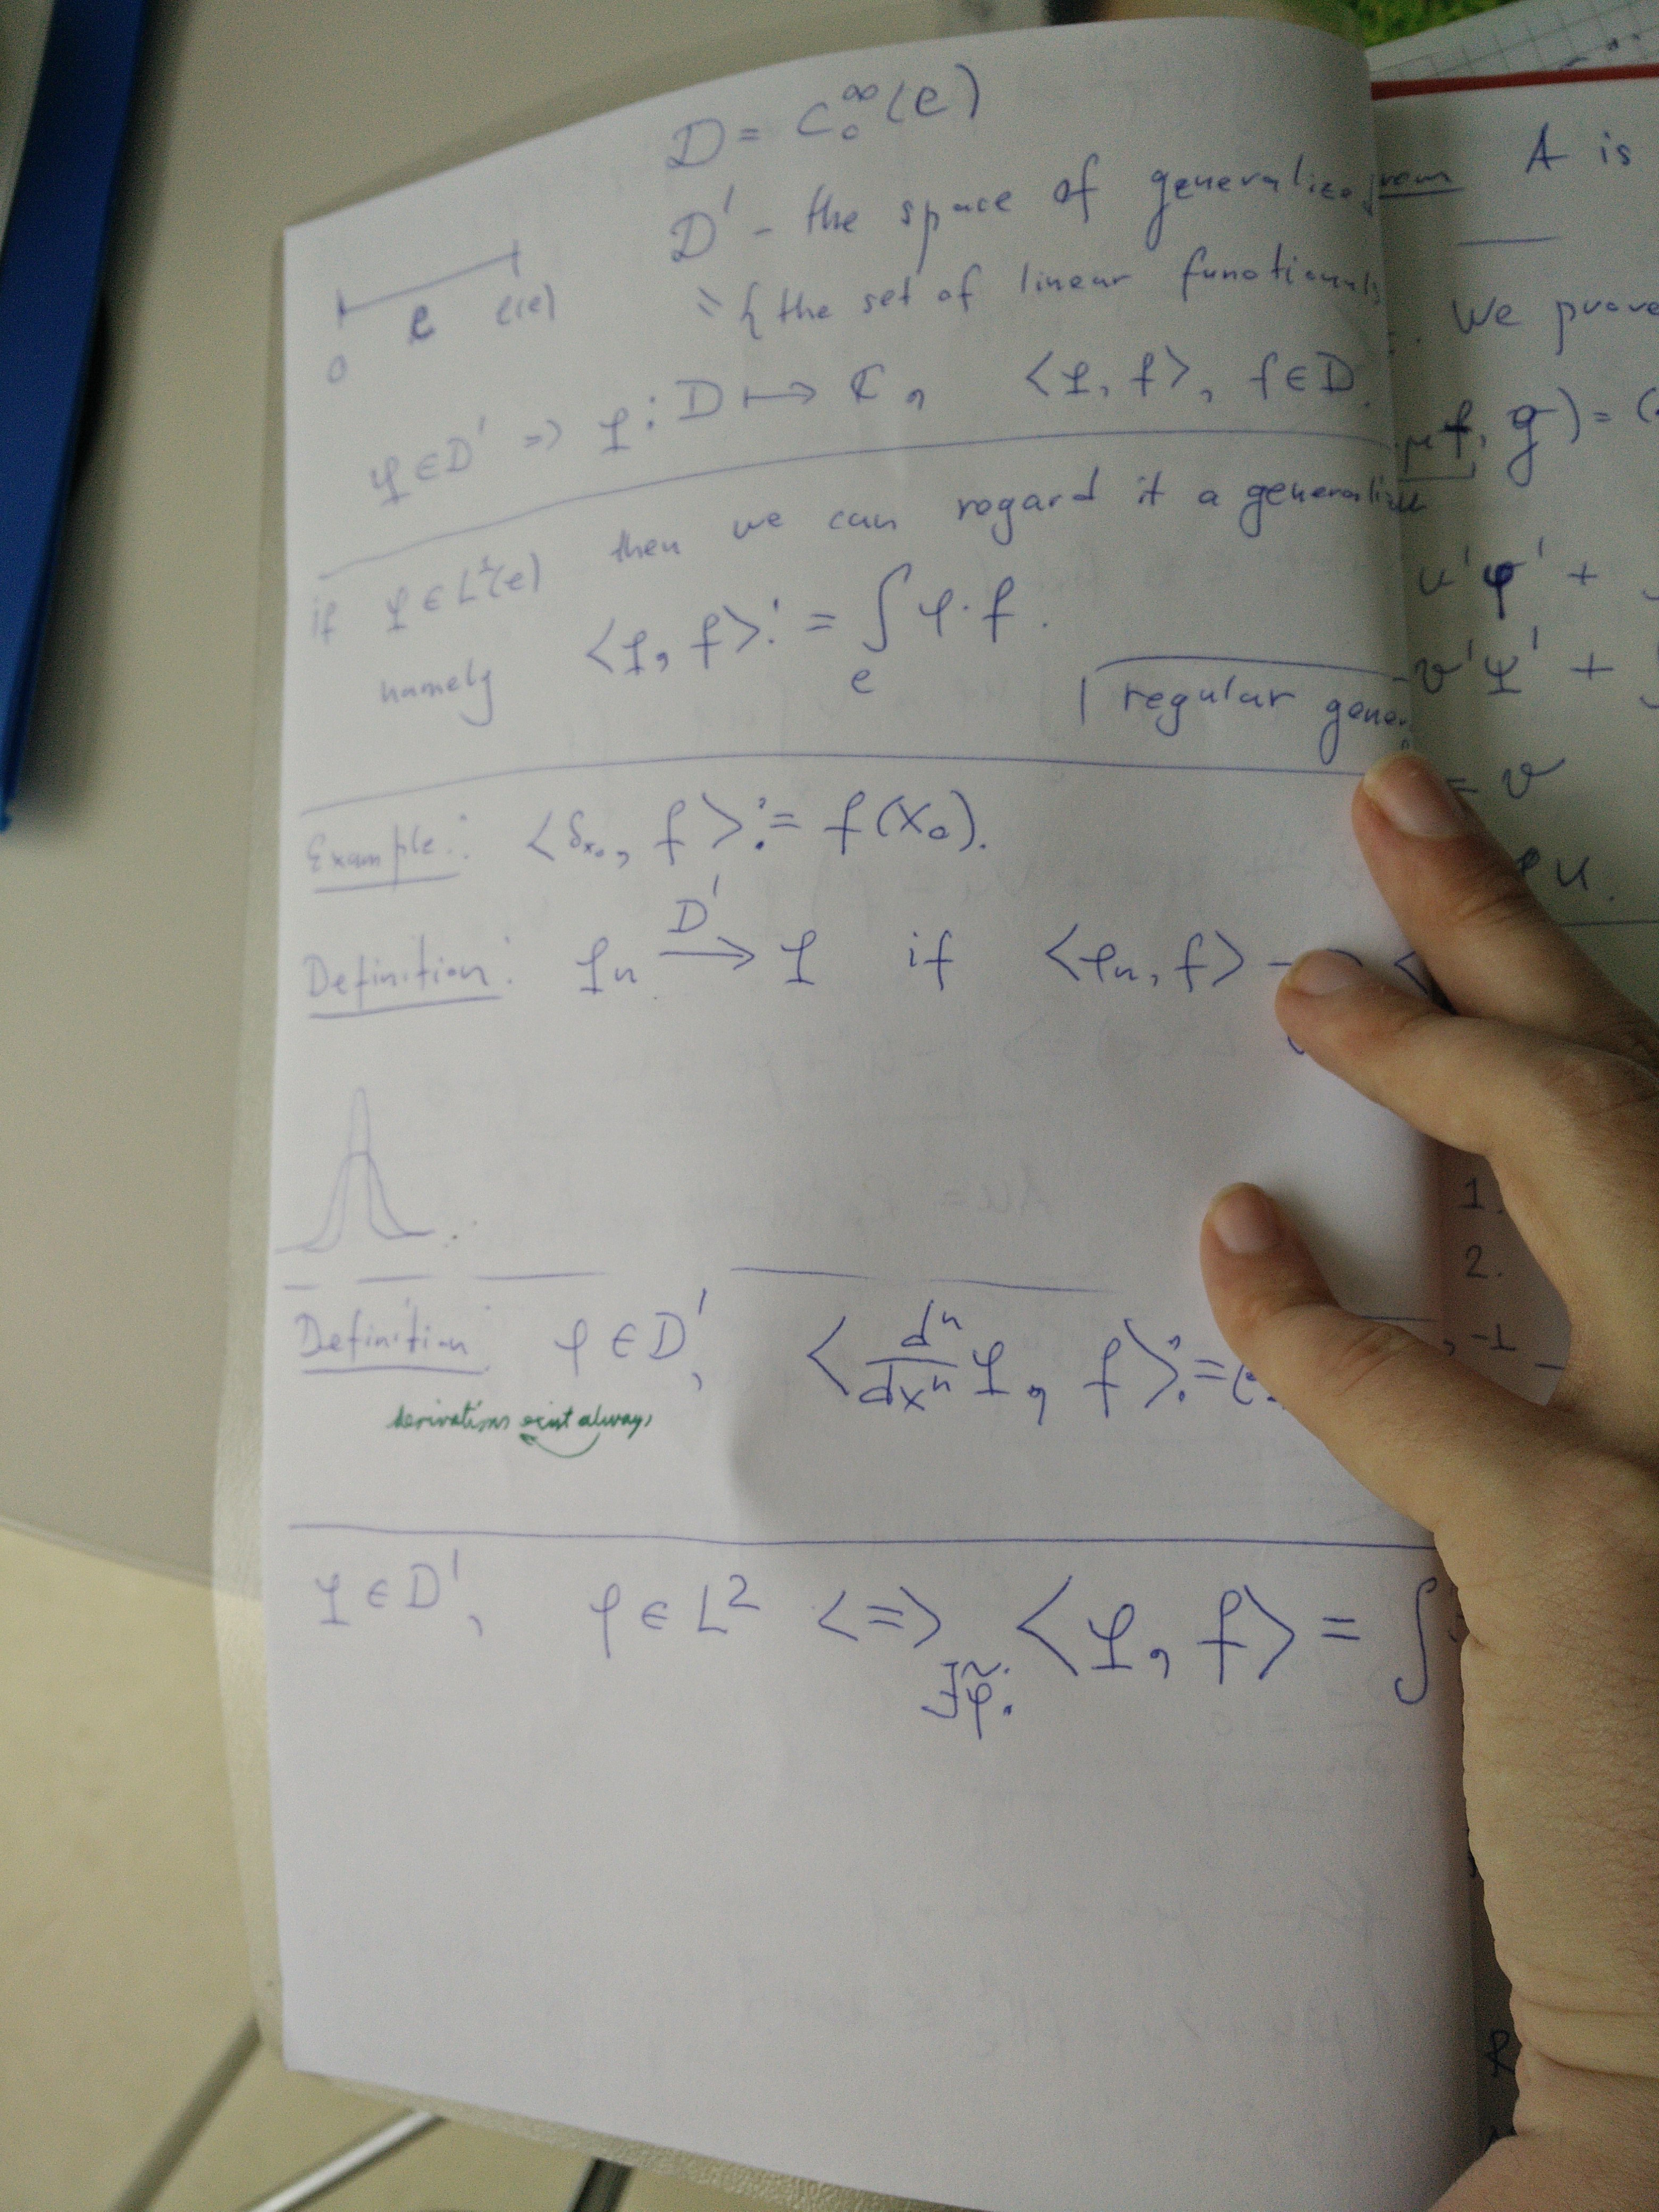 D = C₀^∞(e)
D' - the space of generalize
= { the set of linear functionals
0 e ℓ(e)
φ ∈ D' => φ: D ↦ ℂ, <φ, f>, f ∈ D.
if φ ∈ L²(e) then we can regard it a generalize
namely <φ, f> := ∫_e φ·f.
regular gene
Example: <δ_{x₀}, f> := f(x₀).
Definition: φₙ →^{D'} φ if <φₙ, f> → <
Definition: φ ∈ D', <dⁿ/dxⁿ φ, f> := (-
derivations exist always
φ ∈ D', φ ∈ L² <=> ∃φ̃: <φ, f> = ∫
A is
We prove
f, g) = (
u'φ' +
v'φ' +
= v
u.
1.
2.
, -1
R